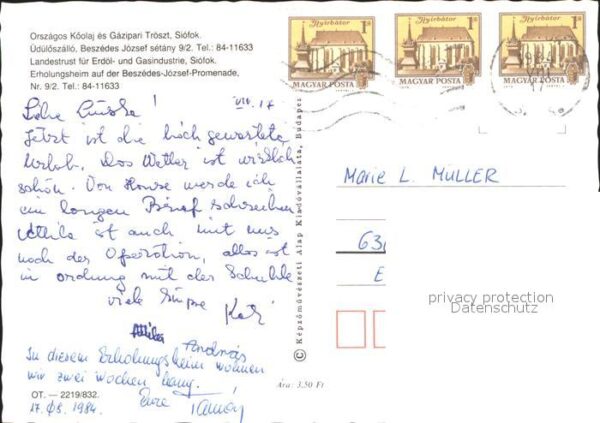 Országos Kőolaj és Gázipari Tröszt, Siófok.
Üdülőszálló, Beszédes József sétány 9/2. Tel.: 84-11633
Landestrust für Erdöl- und Gasindustrie, Siófok.
Erholungsheim auf der Beszédes-József-Promenade,
Nr. 9/2. Tel.: 84-11633
Nyírbátor 1Ft
MAGYAR POSTA
Nyírbátor 1Ft
MAGYAR POSTA
Nyírbátor
MAGYAR POSTA
VIII. 17
Jetzt ist die hoch gewartete
Urlob. Das Wetter ist wirklich
schön. Von House werde ich
ein langen Brief schreiben
Attila ist auch mit uns
noch der Operation, alles ist
in ordnung mit der Schuhle
viele Küsse Kati
Attila András
In diesem Erholungsheim wohnen
wir zwei Wochen lang.
Eure Tamás
17. 08. 1984.
OT. — 2219/832.
Ára: 3,50 Ft
© Képzőművészeti Alap Kiadóvállalata, Budapest
Marie L. MÜLLER
63
E
privacy protection
Datenschutz